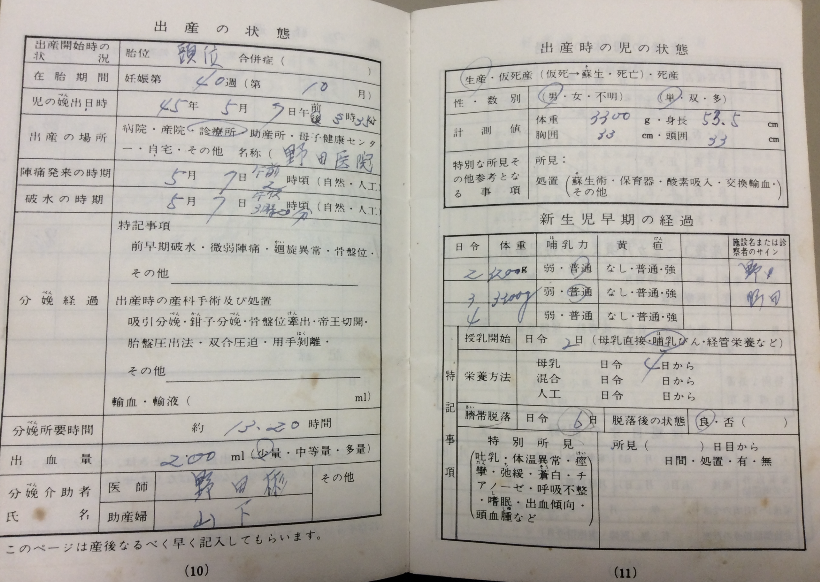 出産の状態
出産開始時の状況 胎位 頭位 合併症( )
在胎期間 妊娠第 40週(第 10 月)
児の娩出日時 45年 5月 7日午前後 時 分
出産の場所 病院・産院・診療所・助産所・母子健康センタ
ー・自宅・その他 名称(野田医院
陣痛発来の時期 5月 7日 午前 2 時頃(自然・人工
破水の時期 5月 7日 時頃(自然・人工
分娩経過 特記事項
前早期破水・微弱陣痛・廻旋異常・骨盤位・
その他
出産時の産科手術及び処置
吸引分娩・鉗子分娩・骨盤位牽出・帝王切開・
胎盤圧出法・双合圧迫・用手剥離・
その他
輸血・輸液( ml)
分娩所要時間 約 13.20 時間
出血量 200 ml(少量・中等量・多量)
分娩介助者氏名 医師 野田 その他
助産婦 山下
このページは産後なるべく早く記入してもらいます。
(10)
出産時の児の状態
生産・仮死産(仮死→蘇生・死亡)・死産
性・数別 (男・女・不明) (単・双・多)
計測値 体重 3300 g・身長 53.5 cm
胸囲 33 cm・頭囲 33 cm
特別な所見その他参考となる事項 所見:
処置(蘇生術・保育器・酸素吸入・交換輸血・
その他
新生児早期の経過
日令 体重 哺乳力 黄疸 施設名または診察者のサイン
2 3200g 弱・普通 なし・普通・強 野田
3 3300g 弱・普通 なし・普通・強 野田
4 弱・普通 なし・普通・強
特記事項
授乳開始 日令 2日(母乳直接・哺乳びん・経管栄養など)
栄養方法 母乳 日令 4日から
混合 日令 日から
人工 日令 日から
臍帯脱落 日令 6日 脱落後の状態 良・否( )
特別所見 所見( )日目から
(吐乳・体温異常・痙 日間・処置・有・無
攣・弛緩・蒼白・チ
アノーゼ・呼吸不整
・嗜眠・出血傾向・
頭血腫など)
(11)